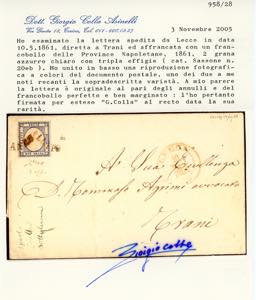 958/28
Dott. Giorgio Colla Asinelli
3 Novembre 2005
Ho esaminato la lettera spedita da Lecce in data
10.5.1861, diretta a Trani ed affrancata con un fran-
cobollo delle Province Napoletane, 1861, 2 grana
azzurro chiaro con triple effigie ( cat. Sassone n.
20eb ). Ho unito in basso una riproduzione fotografi-
ca a colori del documento postale, uno dei due a me
noti recanti la sopradescritta varietà. A mio parere
la lettera è originale al pari degli annulli e del
francobollo perfetto e ben marginato : l'ho pertanto
firmata per esteso "G.Colla" al recto data la sua
rarità.
A Sua Eccellenza
D. Tommaso Agrimi avvocato
Trani
Giorgio Colla